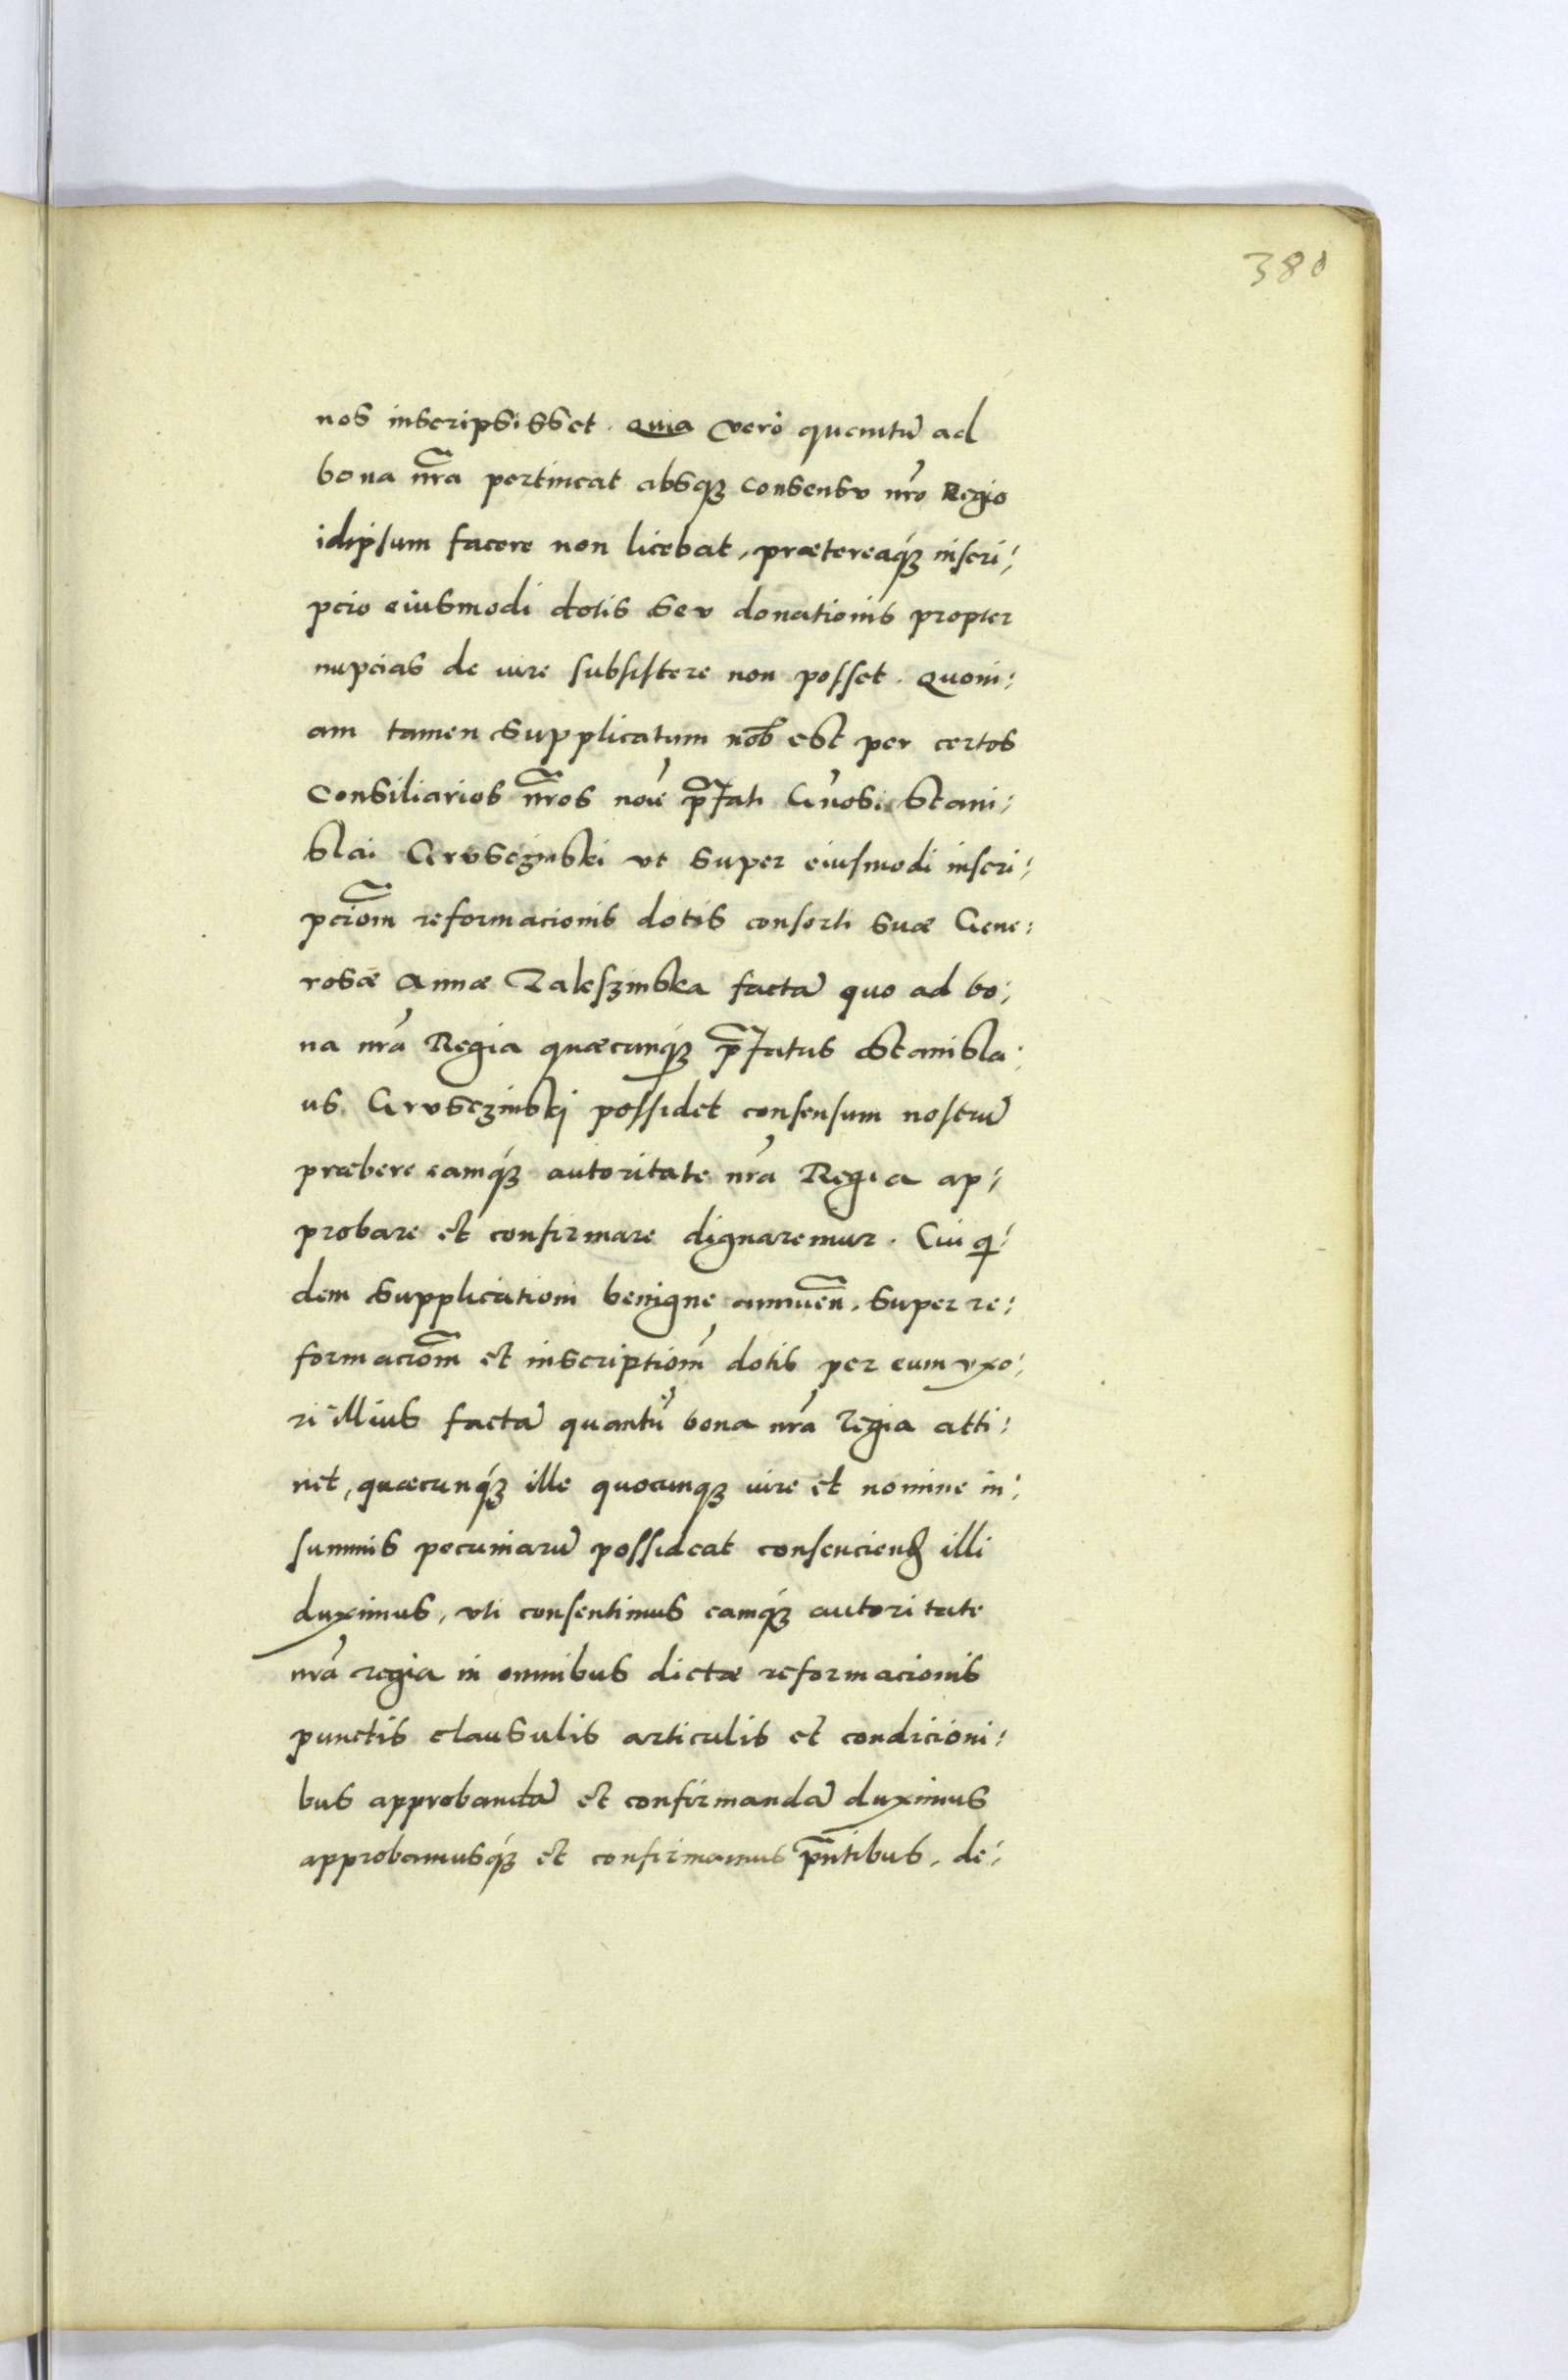 380
nos inscripsisset. Quia vero quantũ ad
bona nr̃a pertineat absqꝫ consensv nr̃o Regio
idipsum facere non licebat, prætereaqꝫ inscri:
pcio eiusmodi dotis sev donationis propter
nupcias de iure subsistere non posset. Quoni:
am tamen supplicatum nob̃ est per certos
Consiliarios nr̃os noĩe p̃fati Gñosi Stani:
slai Grvsczinski vt super eiusmodi inscri:
pciom̃ reformacionis dotis consorti suæ Gene:
rosæ Annæ Zaleszinska factã quo ad bo:
na nr̃a Regia quæcunqꝫ p̃fatus Stanisla:
us Grvsczinskj possidet consensum nostrũ
præbere eamqꝫ autoritate nr̃a Regia ap:
probare et confirmare dignaremur. Cui qi:
dem supplicationi benigne annueñ. super re:
formaciom̃ et inscriptiom̃ dotis per eum vxo:
ri illius factã quantũ bona nr̃a Regia atti:
net, quæcunqꝫ ille quocunqꝫ iure et nomine in:
summis pecuniarũ possideat consenciend̃ illi
duximus, vti consentimus eamqꝫ autoritate
nr̃a regia in omnibus dictæ reformacionis
punctis clausulis articulis et condicioni:
bus approbandã et confirmandã duximus
approbamusqꝫ et confirmamus p̃ntibus. de: